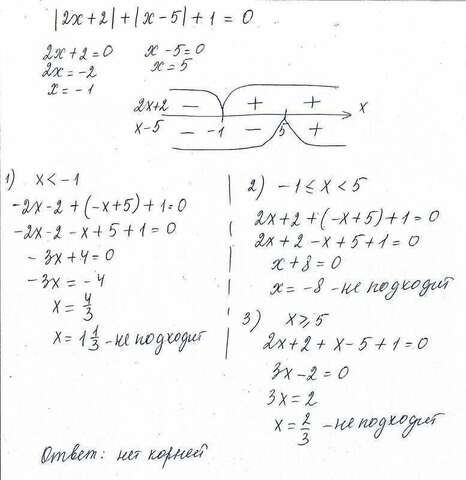 |2x+2|+|x-5|+1=0
2x+2=0 x-5=0
2x=-2 x=5
x=-1
2x+2 - + + x
x-5 - -1 - 5 +
1) x<-1
-2x-2+(-x+5)+1=0
-2x-2-x+5+1=0
-3x+4=0
-3x=-4
x=4/3
x=1 1/3 - не подходит
2) -1≤x<5
2x+2+(-x+5)+1=0
2x+2-x+5+1=0
x+8=0
x=-8 - не подходит
3) x≥5
2x+2+x-5+1=0
3x-2=0
3x=2
x=2/3 - не подходит
Ответ: нет корней